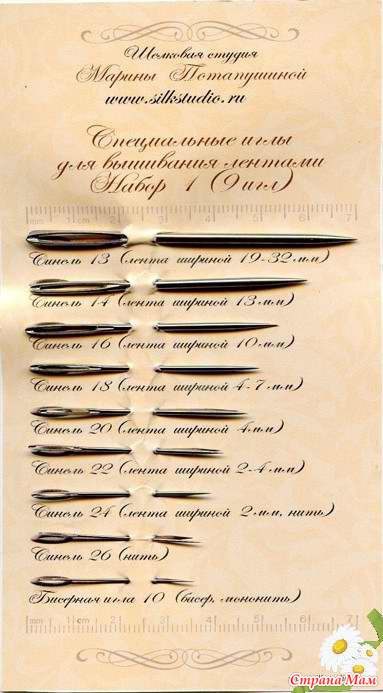 Шелковая студия
Марины Потапушиной
www.silkstudio.ru
Специальные иглы
для вышивания лентами
Набор 1 (9 игл)
mm 1 cm 2 3 4 5 6 7
Синель 13 (лента шириной 19-32 мм)
Синель 14 (лента шириной 13 мм)
Синель 16 (лента шириной 10 мм)
Синель 18 (лента шириной 4-7 мм)
Синель 20 (лента шириной 4 мм)
Синель 22 (лента шириной 2-4 мм)
Синель 24 (лента шириной 2 мм, нить)
Синель 26 (нить)
Бисерная игла 10 (бисер, мононить)
mm 1 cm 2 3 4 5 6 7
Страна Мам